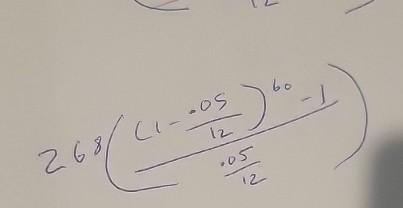 12
268(((1-.05/12)^60-1)/(.05/12))